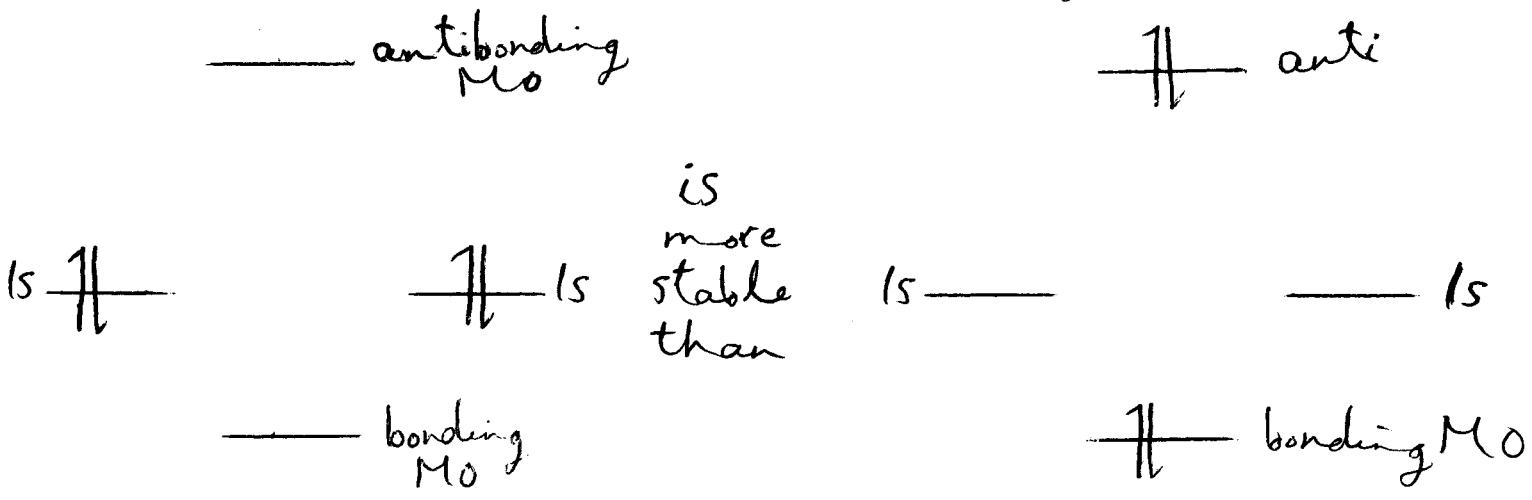 antibonding
MO
anti
is
more
stable
than
1s
1s
1s
1s
bonding
MO
bonding MO